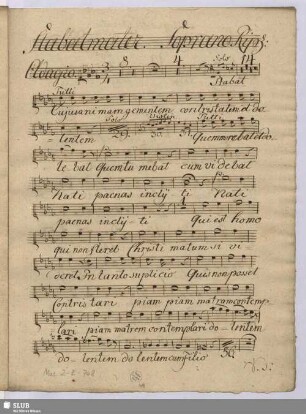 Stabat mater. Soprano Rip:
Adagio 3/4 3 4 Solo 14
Stabat
Tutti
Cujus animam gementem contristatam et do
Solo Tutti
lentem Quae moerebat et do
le bat Quem tu mebat cum vi de bat
Nati paenas inclij ti Nati
paenas inclij-ti Qui est homo
qui non fleret Christi matrem si vi
deret In tanto suplicio Quis non posset
Contris tari piam piam matrem contemp
lari piam matrem contemplari do lentem
do lentem do lentem cum filio
Mus. 2-E-748
SLUB